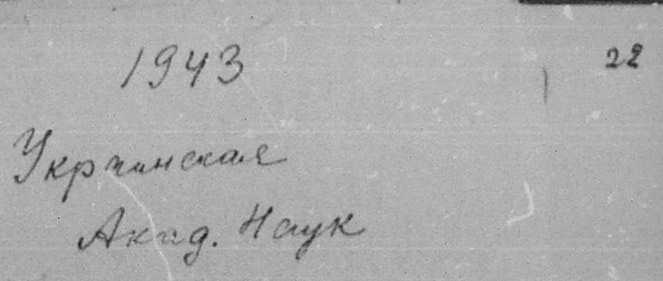 1943
22
Украинская
Акад. Наук